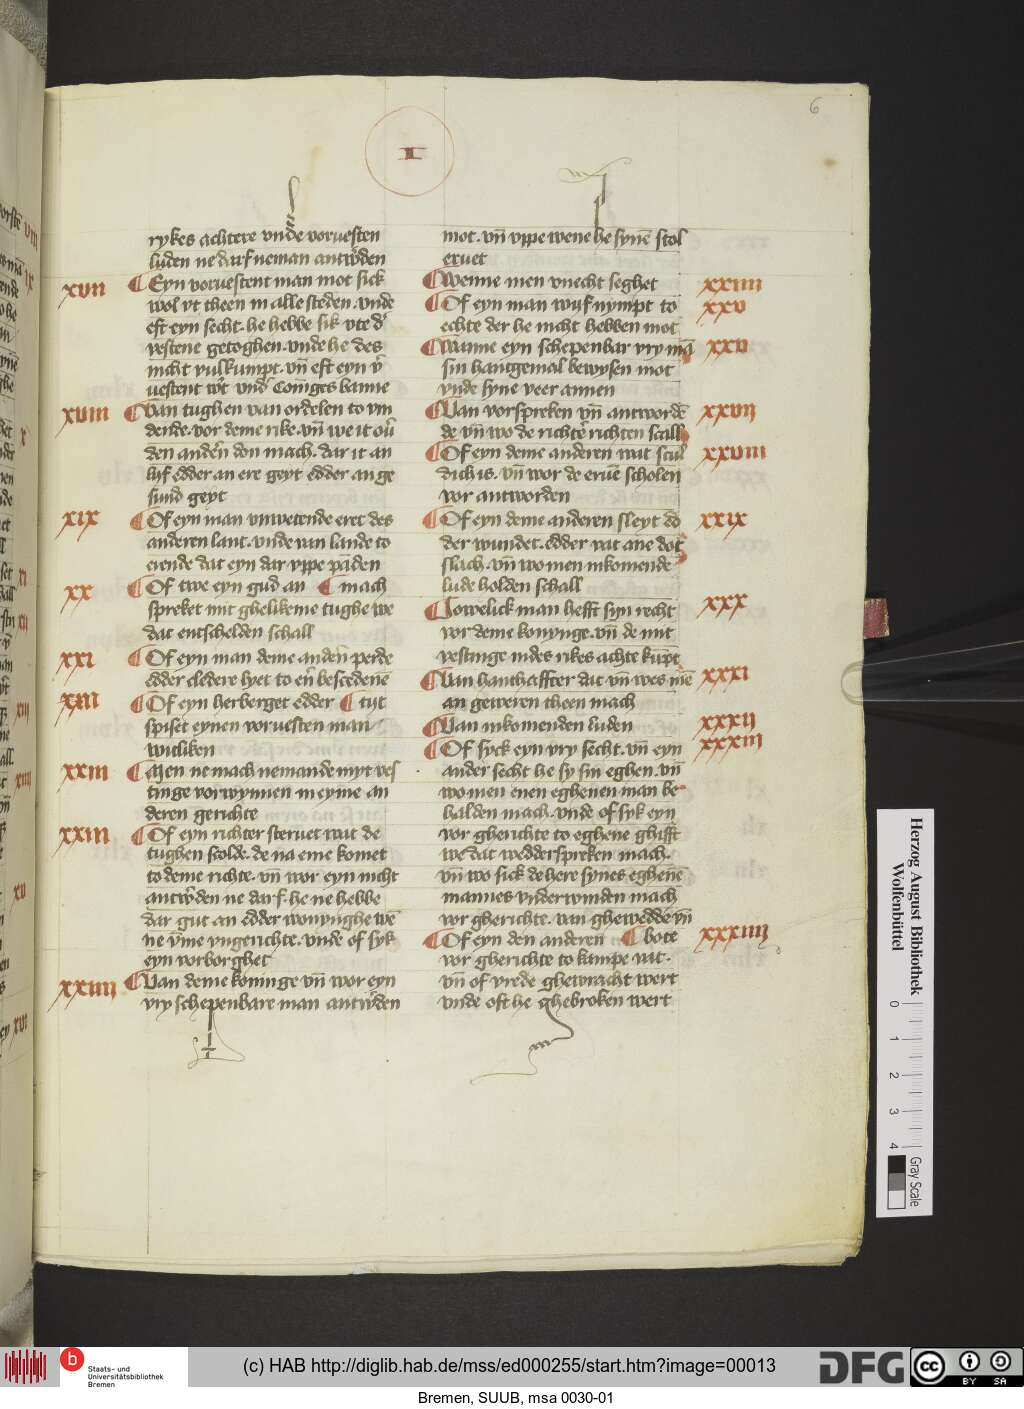 6
I
rykes achtere vnde voruesten
luden ne darf neman antw̄den
XVII Eyn voruestent man mot sick
wol vt theen in alle steden. vnde
eft eyn secht. he hebbe sik vte d'
vestene getoghen. vnde he des
nicht vulkumpt. vn̄ eft eyn v̄
uestent wt̄ vnd' Coniges banne
XVIII Van tughen van ordelen to vin
dende. vor deme rike. vn̄ we it ou̅
den ander̄n don mach. dar it an
lyf edder an ere geyt edder an ge
sund geyt
XIX Of eyn man vnwetende eret des
anderen lant. vnde van lande to
eiende dat eyn dar vppe pa̅den
XX Of twe eyn gud an mach
spreket mit ghelikeme tughe we
dat entschelden schall
XXI Of eyn man deme ander̄n perde
edder cledere lyet to en̄ bescedene
XXII Of eyn herberget edder tiit
spiset eynen voruesten man
witliken
XXIII Men ne mach nemande myt ves
tinge vorwynnen in eyme an
deren gerichte
XXIII Of eyn richter steruet wit de
tughen scolde. de na eme komet
to deme richte. vn̄ wor eyn nicht
antw̄den ne darf. he ne hebbe
dar gut an edder wonynghe we̅
ne v̄me vngerichte. vnde of syk
eyn vorborghet
XXIIII Van deme koninge vn̄ wor eyn
vry schepenbare man antw̄den
mot. vn̄ vppe wene he syne̅ stol
eruet
Wenne men vnecht seghet XXIIII
Of eyn man wijf nympt to XXV
echte der he nicht hebben mot
Wanne eyn schepenbar vry ma̅ XXVI
sin hantgemal bewysen mot
vnde syne veer annen
Van vorspreken vn̄ antworde̅ XXVII
de vn̄ wo de richter̄ richten scall
Of eyn deme anderen wit scul XXVIII
dich is. vn̄ wor de erue̅ scholen
vor antworden
Of eyn deme anderen sleyt do XXIX
der wundet. edder wit ane dot
slach. vn̄ wo men inkomende
lude holden schall
Jowelick man hefft syn recht XXX
vor deme konynge. vn̄ de mit
vestinge in des rikes achte ku̅pt
Van hanthaffter dat vn̄ wes me̅ XXXI
an geweren theen mach
Van inkomenden luden XXXII
Of syck eyn vry secht. vn̄ eyn XXXIII
ander secht he sy sin eghen. vn̄
wo men enen eghenen man be
halden mach. vnde of syk eyn
vor gherichte to eghene ghifft
we dat wedderspreken mach.
vn̄ wo sick de here synes eghene̅
mannes vnderwinden mach
vor gherichte. van ghewedde vn̄
Of eyn den anderen bote XXXIIII
vor gherichte to kampe vit.
vn̄ of vrede ghewracht wert
vnde oft he ghebroken wert
Herzog August Bibliothek
Wolfenbüttel
0 1 2 3 4
Gray Scale
b Staats- und
Universitätsbibliothek
Bremen
(c) HAB http://diglib.hab.de/mss/ed000255/start.htm?image=00013
DFG
cc BY SA
Bremen, SUUB, msa 0030-01